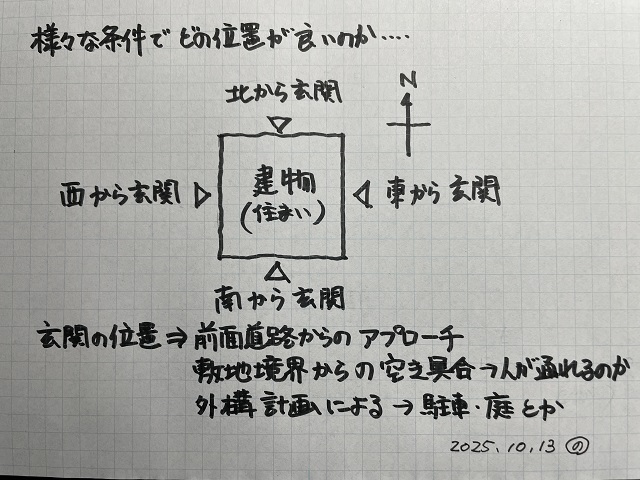 様々な条件でどの位置が良いのか‥‥
北から玄関
N
西から玄関
建物
(住まい)
東から玄関
南から玄関
玄関の位置⇒前面道路からのアプローチ
敷地境界からの空き具合→人が通れるのか
外構計画による→駐車・庭とか
2025.10.13 の